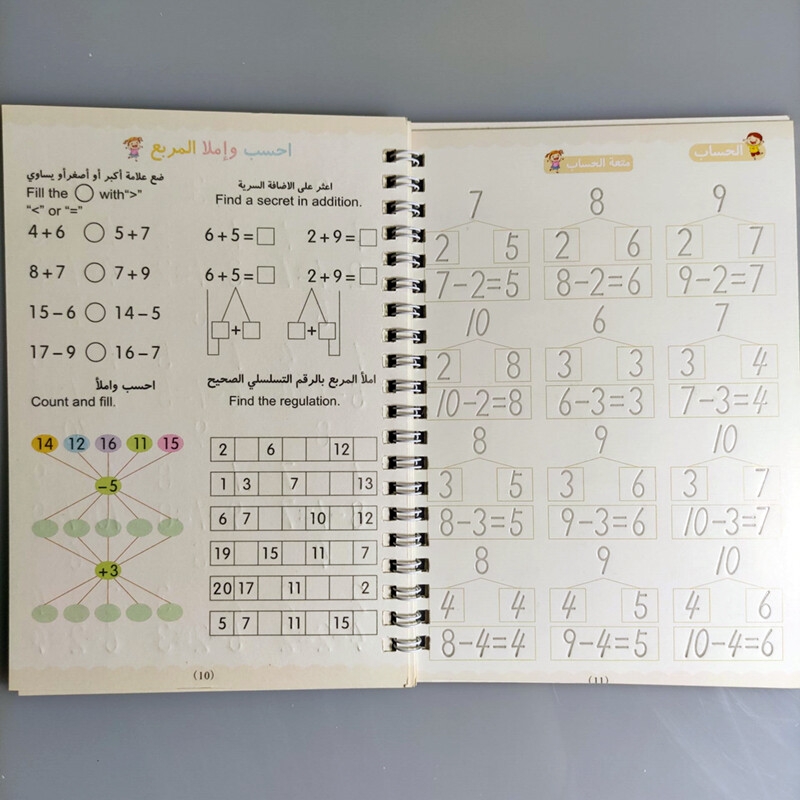 احسب وإملا المربع
ضع علامة أكبر أو أصغرأو يساوي
Fill the ◯ with“>”
“<” or “=”
4+6 ◯ 5+7
8+7 ◯ 7+9
15−6 ◯ 14−5
17−9 ◯ 16−7
اعثر على الاضافة السرية
Find a secret in addition.
6+5=□ 2+9=□
6+5=□ 2+9=□
□+□ □+□
احسب واملأ
Count and fill.
14 12 16 11 15
−5
+3
املأ المربع بالرقم التسلسلي الصحيح
Find the regulation.
2 6 12
1 3 7 13
6 7 10 12
19 15 11 7
20 17 11 2
5 7 11 15
(10)
الحساب
متعة الحساب
7 8 9
2 5 2 6 2 7
7−2=5 8−2=6 9−2=7
10 6 7
2 8 3 3 3 4
10−2=8 6−3=3 7−3=4
8 9 10
3 5 3 6 3 7
8−3=5 9−3=6 10−3=7
8 9 10
4 4 4 5 4 6
8−4=4 9−4=5 10−4=6
(11)